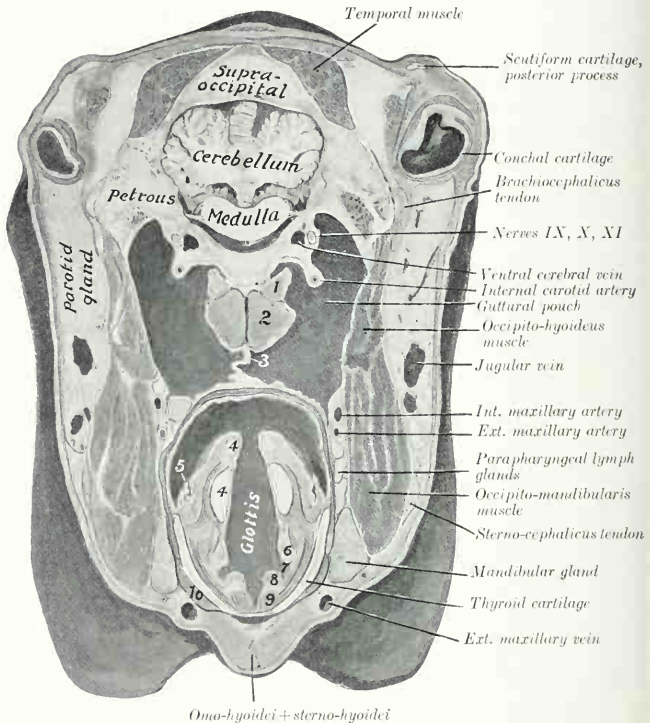 Temporal muscle
Scutiform cartilage,
posterior process
Supra-
occipital
Cerebellum
Conchal cartilage
Petrous
Medulla
Brachiocephalicus
tendon
Nerves IX, X, XI
Parotid
gland
Ventral cerebral vein
Internal carotid artery
Guttural pouch
1
2
Occipito-hyoideus
muscle
3
Jugular vein
Int. maxillary artery
Ext. maxillary artery
4
5
4
Glottis
Parapharyngeal lymph
glands
Occipito-mandibularis
muscle
Sterno-cephalicus tendon
6
7
8
9
10
Mandibular gland
Thyroid cartilage
Ext. maxillary vein
Omo-hyoidei + sterno-hyoidei